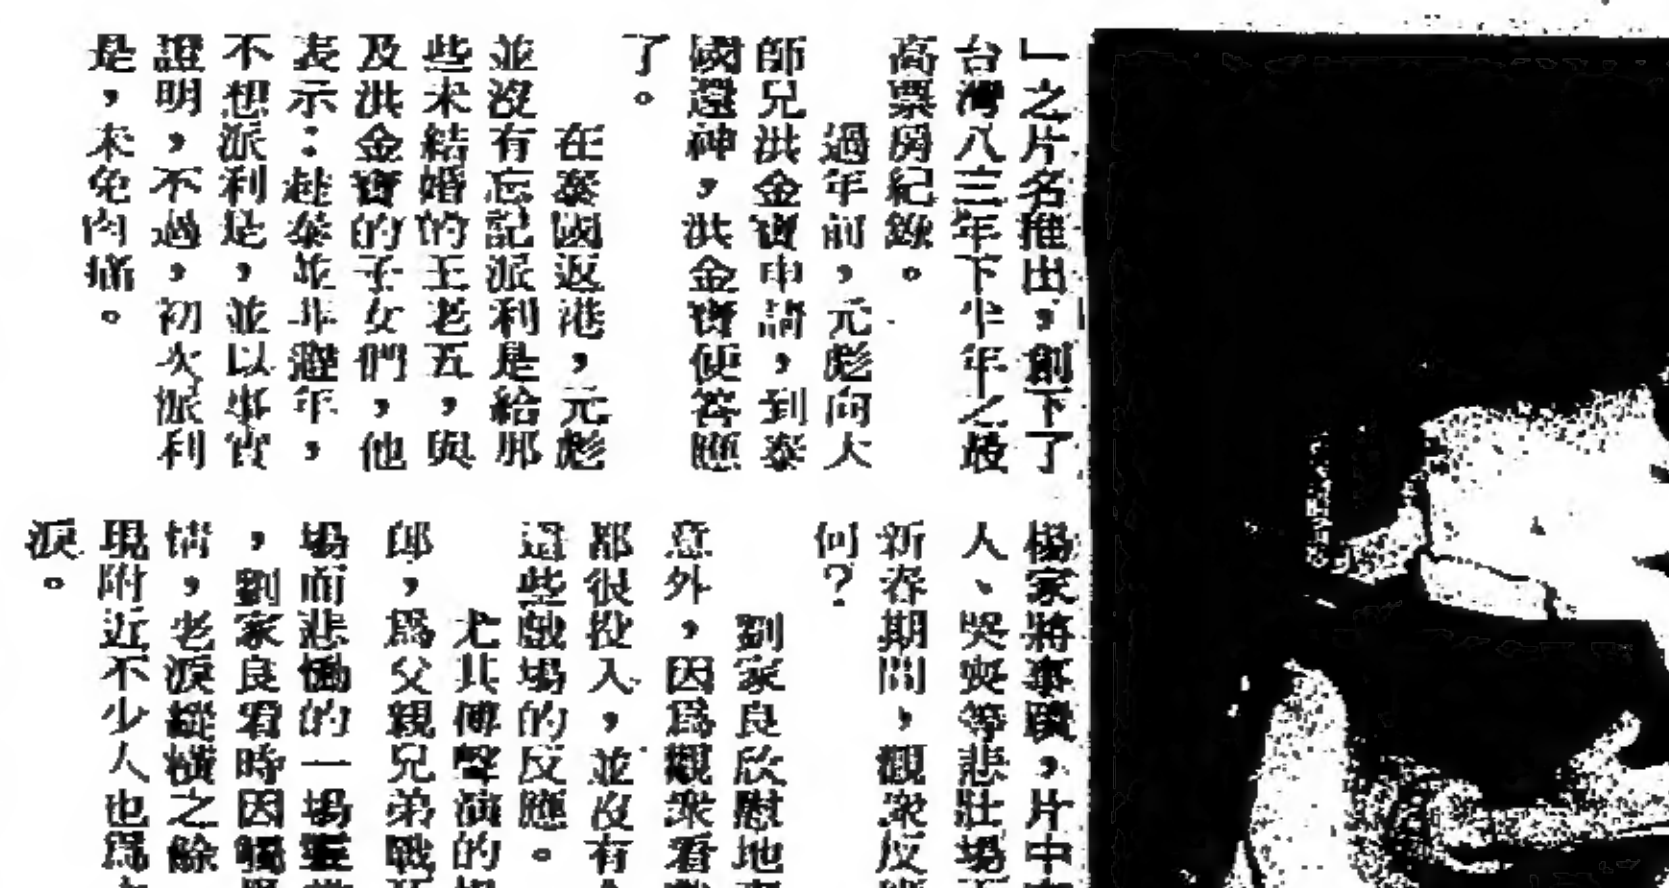 」之片名推出，創下了
台灣八三年下半年之最
高票房紀錄。
過年前，元彪向大
師兄洪金寶申請，到泰
國還神，洪金寶便答應
了。
在泰國返港，元彪
並沒有忘記派利是給那
些未結婚的王老五，與
及洪金寶的子女們，他
表示：赴泰並非避年，
不想派利是，並以事實
證明，不過，初次派利
是，未免肉痛。
楊家將事蹟，片中
人、哭喪等悲壯場
新春期間，觀衆反
何？
劉家良欣慰地
意外，因爲觀衆看
都很投入，並沒有
這些戲場的反應。
尤其傅聲演的
郎，爲父親兄弟戰
場而悲慟的一場
，劉家良看時因觸
情，老淚縱橫之餘
現附近不少人也爲
淚。